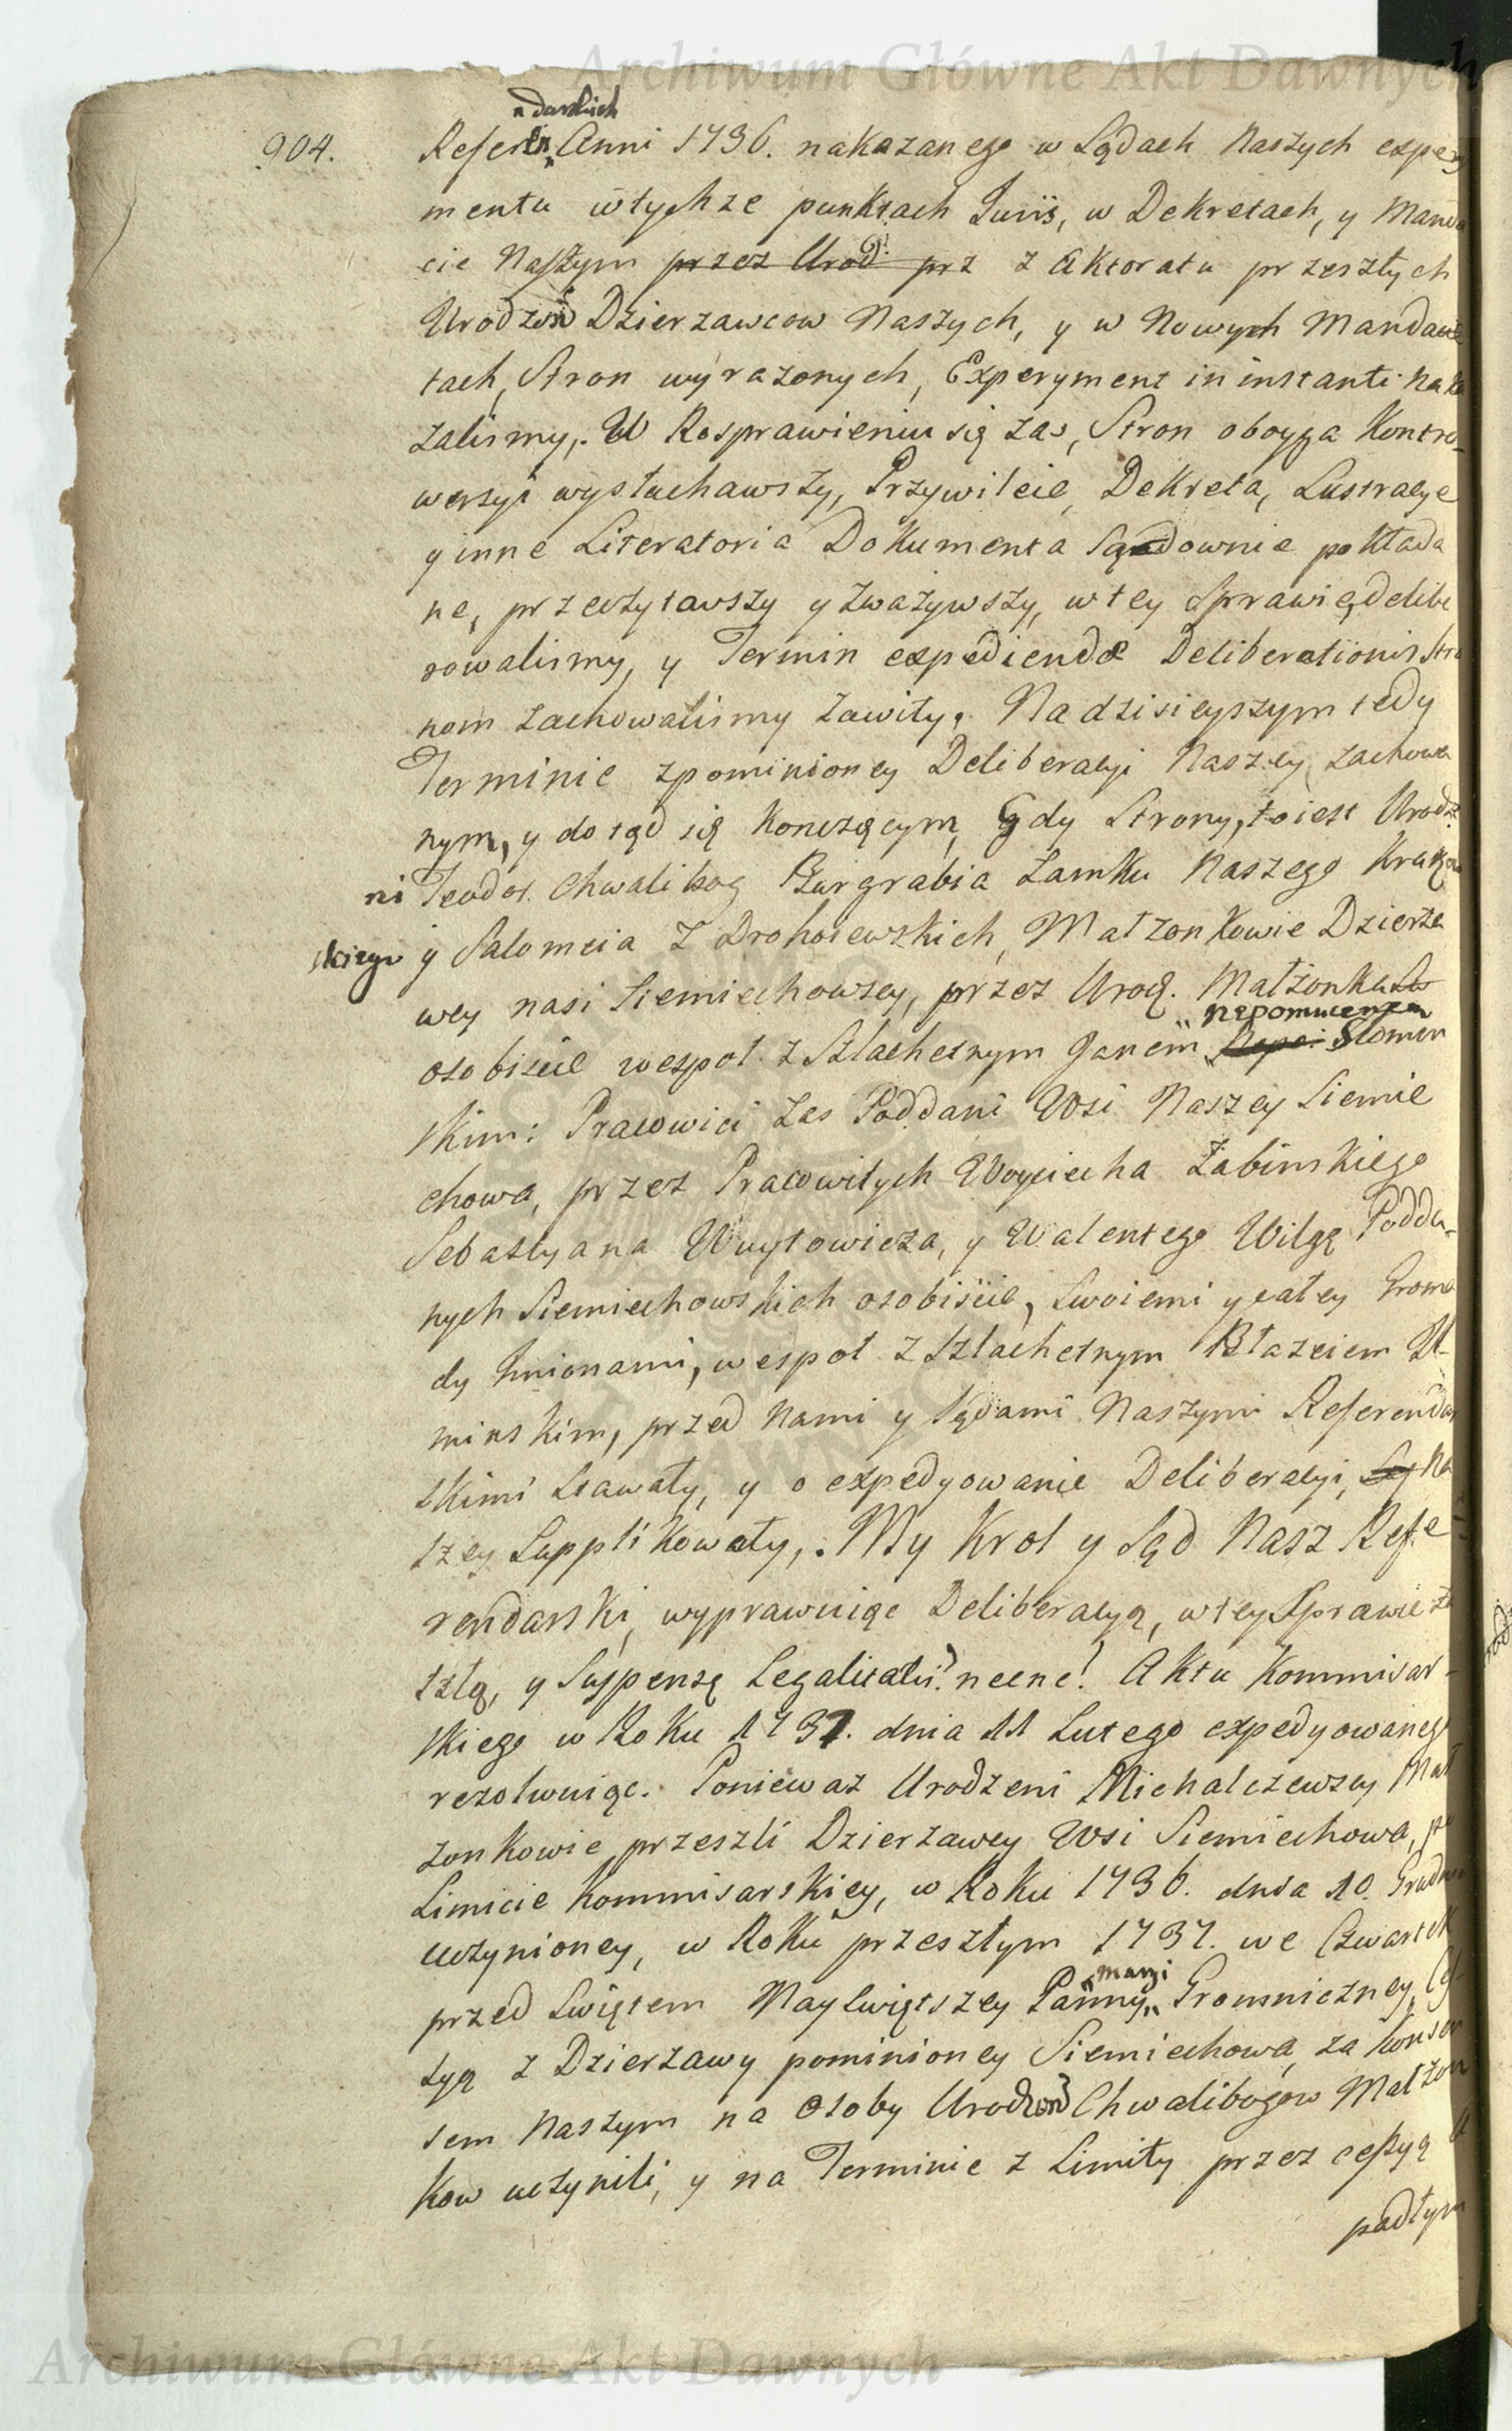 Archiwum Główne Akt Dawnych
904.
ndarskich
Refere Anni 1736. nakazanego w Sądach Naszych expery
mentu w tychze punktach Juris, w Dekretach, y Manda
cie Naszym przez Urod: prz z Aktoratu przeszłych
Urodzon Dzierzawcow Naszych, y w Nowych Manda
tach, Stron wyrazonych, Experyment in instanti naka
zalismy,. W Rosprawieniu się zas, Stron oboyga Kontro-
wersyi wysłuchawszy, Przywileie, Dekreta, Lustracye
y inne Literatoria Dokumenta Sądownie pokłada
ne, przeczytawszy y zwazywszy, w tey Sprawie, delibe
rowalismy, y Termin expediendæ Deliberationis Stro
nom zachowalismy zawity,. Na dzisieyszym tedy
Terminie zpominioney Deliberacyi Naszey zachowa
nym, y dotąd się konczącym, Gdy Strony, to iest Urodz:
ni Teodor Chwalibog Burgrabia Zamku Naszego Krakow
skiego y Salomeia z Drohoiewskich, Małzonkowie Dzierza
wcy nasi Siemiechowscy, przez Urod. Małzonka
nepomucenem
osobiscie wespoł z Szlachetnym Janem Nepo: Słomin
skim: Pracowici zas Poddani Wsi Naszey Siemie
chowa, przez Pracowitych Woyciecha Żabinskiego
Sebastyana Wuytowicza, y Walentego Wilgę Podda-
nych Siemiechowskich osobiscie, Swoiemi y całey Groma
dy Imionami, wespoł z Szlachetnym Błazeiem
minskim, przed Nami y Sądami Naszymi Referendar
skimi Stawały, y o expedyowanie Deliberacyi, Na
szey Supplikowały,. My Krol y Sąd Nasz Refe
rendarski, wyprawuiąc Deliberacyą, w tey Sprawie
szłą, y Suspensę Legalitatis? necne! Aktu Kommisar-
skiego w Roku 1737. dnia 11 Lutego expedyowanego
rezolwuiąc. Poniewaz Urodzeni Michalczewscy Mał
zonkowie przeszli Dzierzawcy Wsi Siemiechowa, po
Limicie Kommisarskiey, w Roku 1736. dnia 10. Grudnia
uczynioney, w Roku przeszłym 1737. we Czwartek
maryi
przed Swiętem Nayswiętszey Panny Gromniczney, Ces-
syą z Dzierzawy pominioney Siemiechowa, za Konsen
sem Naszym na Osoby Urodzon Chwalibogow Małzon
kow uczynili, y na Terminie z Limity przez cessyą
padłym
Archiwum Główne Akt Dawnych